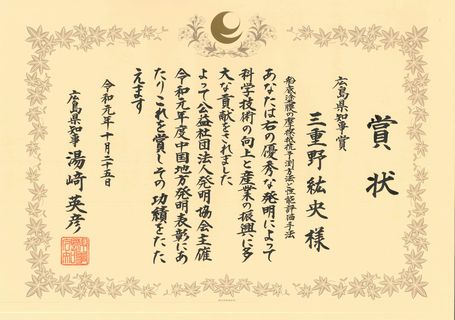 賞状
広島県知事賞
三重野 紘央 様
船底塗膜の摩擦抵抗予測方法と性能評価手法
あなたは右の優秀な発明によって
科学技術の向上と産業の振興に多
大な貢献をされました
よって公益社団法人発明協会主催
令和元年度中国地方発明表彰にあ
たりこれを賞しその功績をたた
えます
令和元年十月二十五日
広島県知事 湯﨑英彦